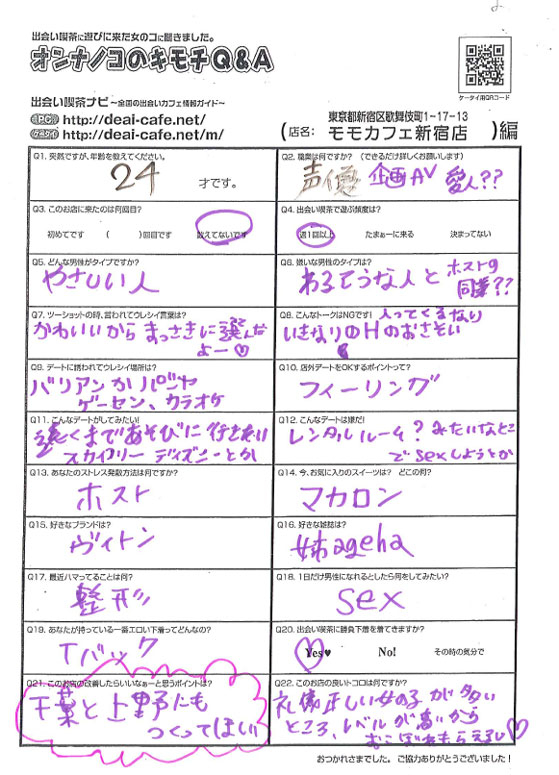 出会い喫茶に遊びに来た女のコに聞きました。
オンナノコのキモチQ&A
ケータイ用QRコード
出会い喫茶ナビ～全国の出会いカフェ情報ガイド～
PC http://deai-cafe.net/
ケータイ http://deai-cafe.net/m/
(店名: 東京都新宿区歌舞伎町1-17-13
モモカフェ新宿店 )編
Q1. 突然ですが、年齢を教えてください。
24 才です。
Q2. 職業は何ですか? (できるだけ詳しくお願いします)
声優 企画AV 愛人??
Q3. このお店に来たのは何回目?
初めてです ( )回目です 数えてないです
Q4. 出会い喫茶で遊ぶ頻度は?
週1回以上 たまぁーに来る 決まってない
Q5. どんな男性がタイプですか?
やさしい人
Q6. 嫌いな男性のタイプは?
わるそうな人と ホストの
同業??
Q7. ツーショットの時、言われてウレシイ言葉は?
かわいいから まっさきに選んだ
よー♡
Q8. こんなトークはNGです!
入ってくるなり
いきなりのHのおさそい
Q9. デートに誘われてウレシイ場所は?
バリアンかパシャ
ゲーセン、カラオケ
Q10. 店外デートをOKするポイントって?
フィーリング
Q11. こんなデートがしてみたい!
遠くまであそびに行きたい
スカイツリー ディズニーとか
Q12. こんなデートは嫌だ!
レンタルルーム? みたいなとこ
でsexしようとか
Q13. あなたのストレス発散方法は何ですか?
ホスト
Q14. 今、お気に入りのスイーツは? どこの何?
マカロン
Q15. 好きなブランドは?
ヴィトン
Q16. 好きな雑誌は?
姉ageha
Q17. 最近ハマってることは何?
整形
Q18. 1日だけ男性になれるとしたら何をしてみたい?
sex
Q19. あなたが持っている一番エロい下着ってどんなの?
Tバック
Q20. 出会い喫茶に勝負下着を着てきますか?
Yes♥ No! その時の気分で
Q21. このお店の改善したらいいなぁーと思うポイントは?
千葉と上野にも
つくってほしい
Q22. このお店の良いトコロは何ですか?
礼儀正しい女の子が多い
ところ、レベルが高いから
おこぼれもらえるし♡
おつかれさまでした。 ご協力ありがとうございました!